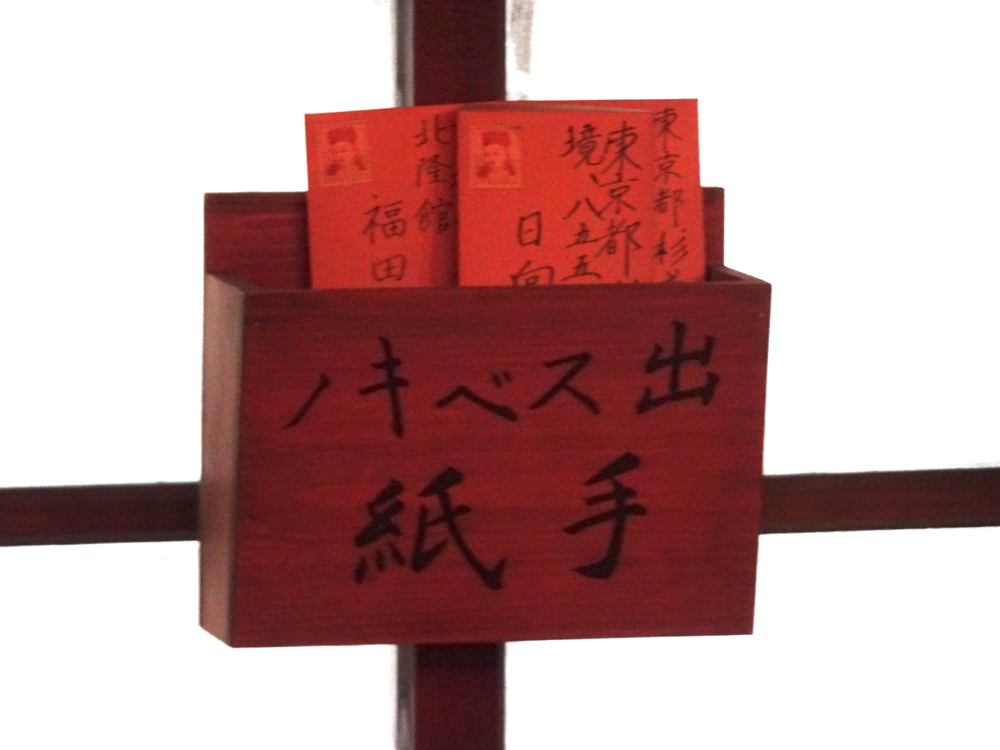 東京都杉
東京都
境八五五
日向
北隆館
福田
出スベキノ
手紙